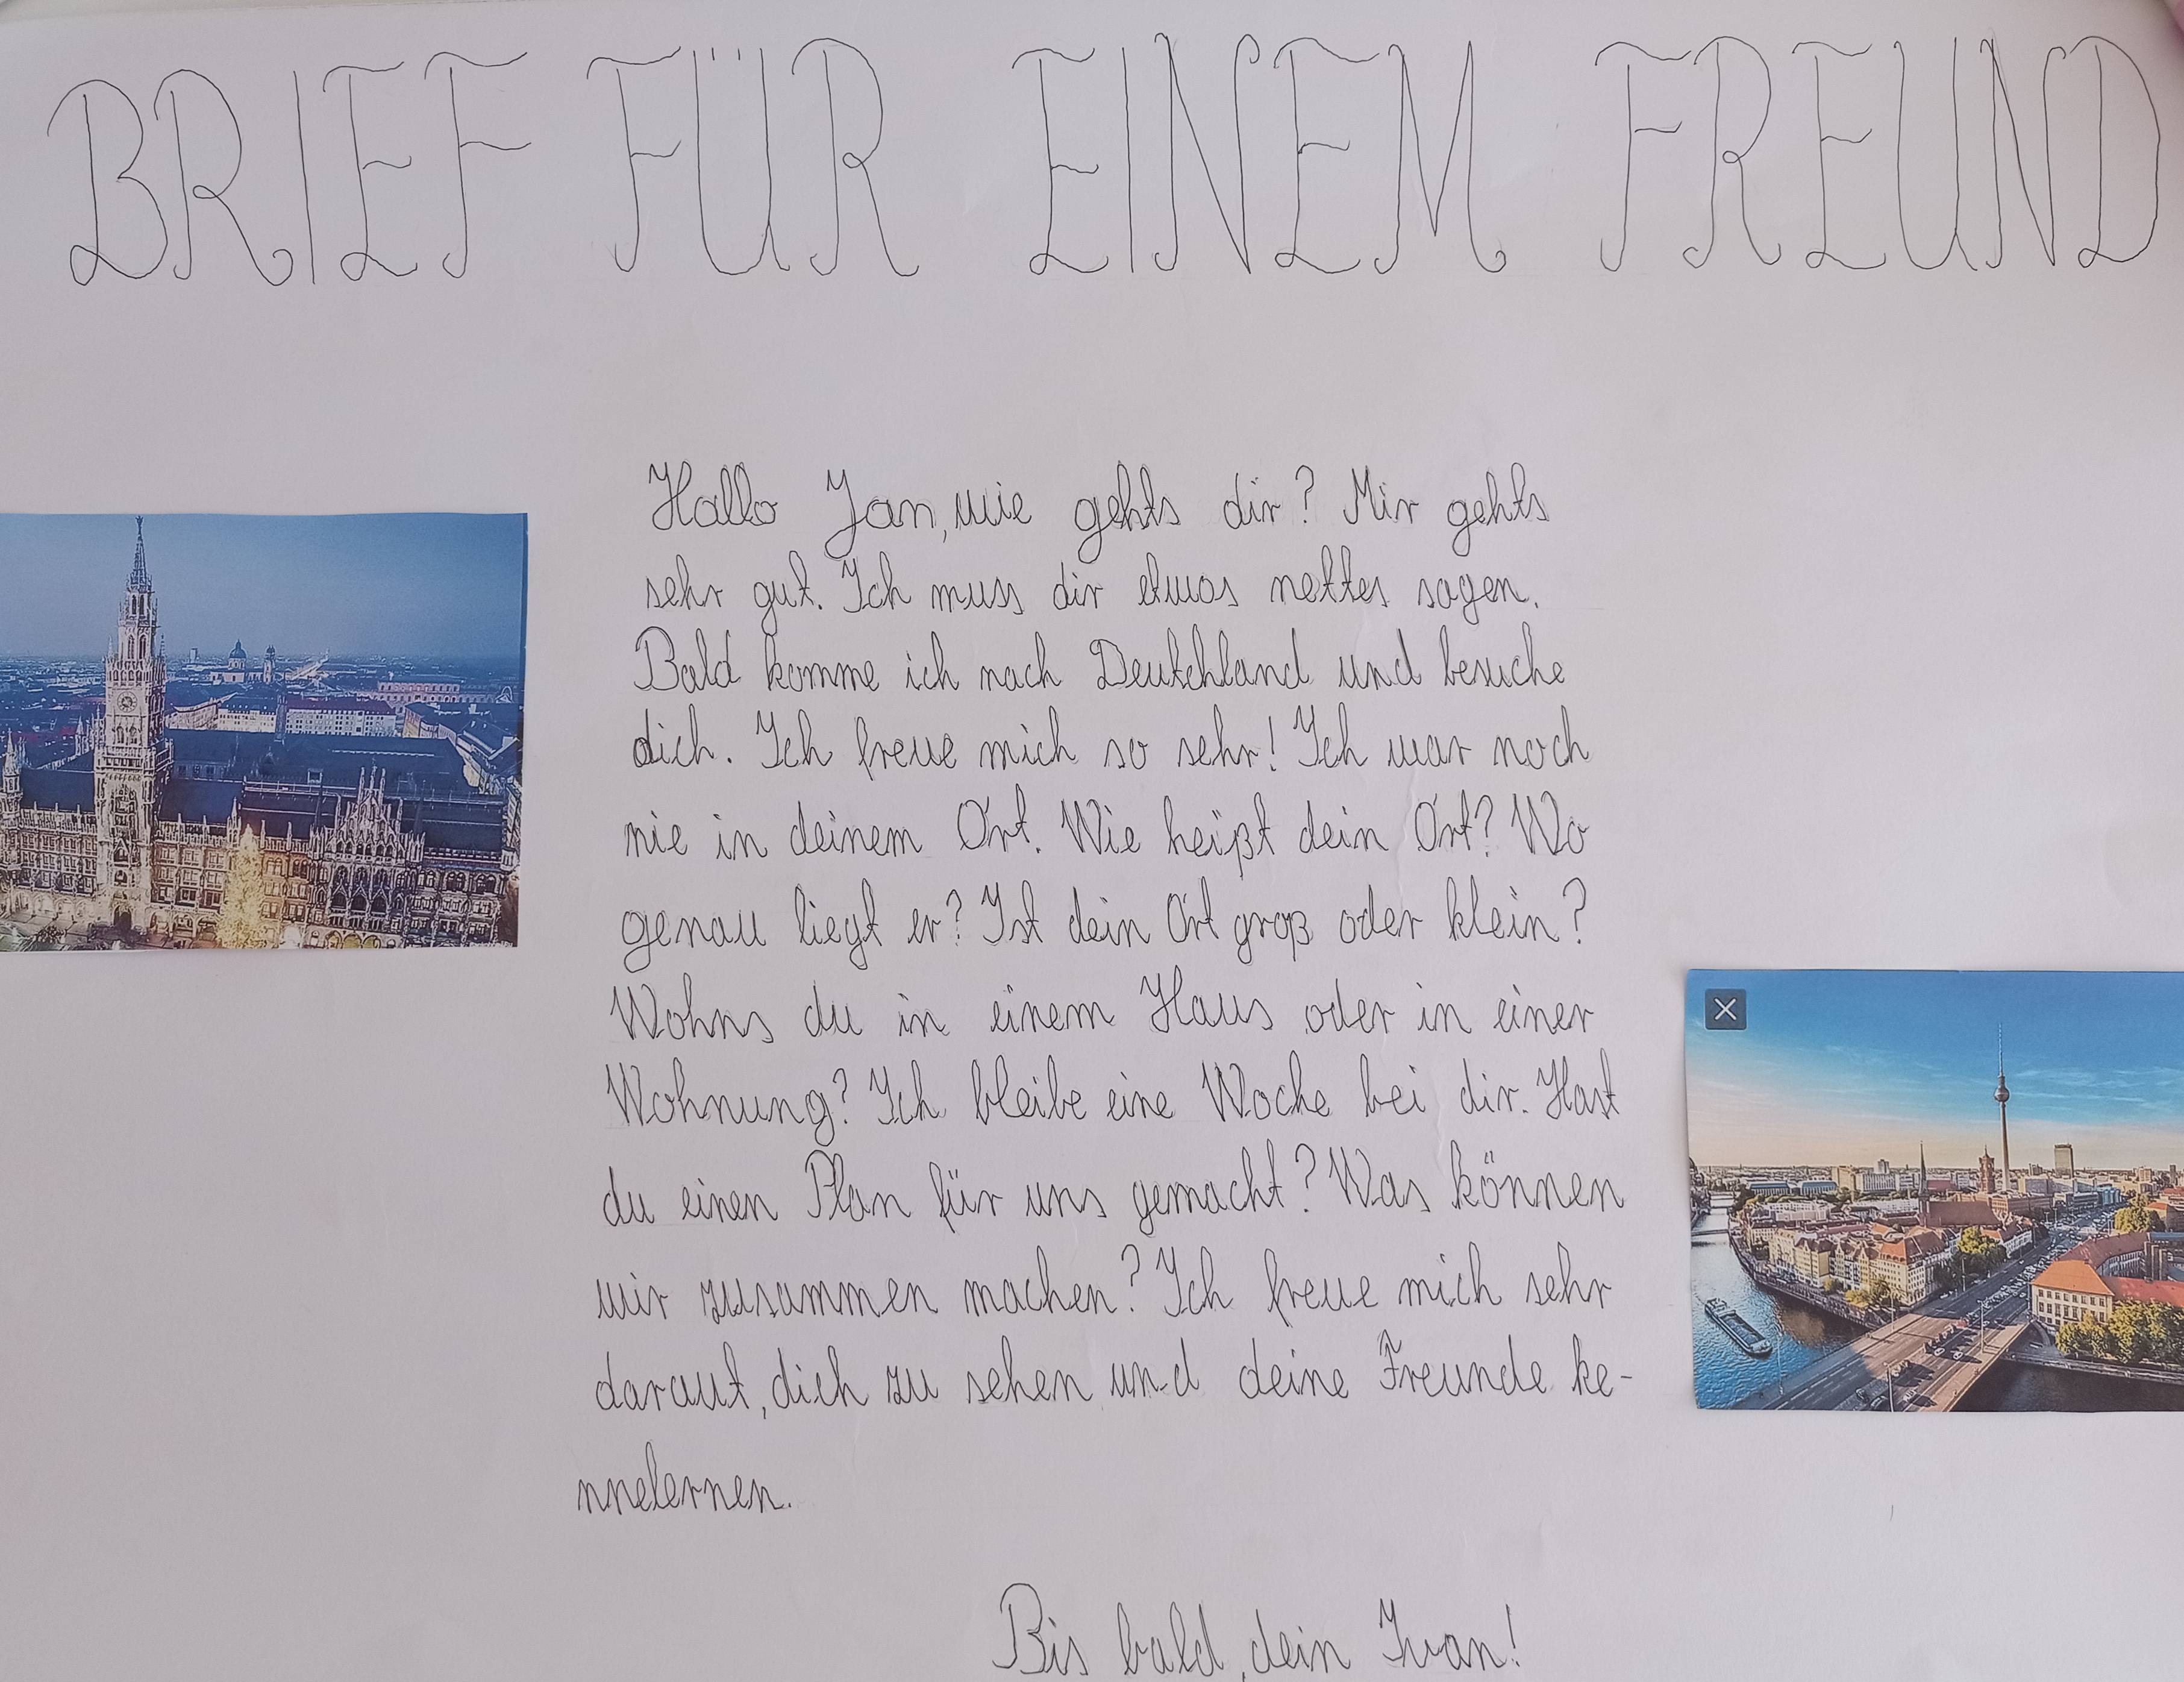 BRIEF FÜR EINEM FREUND
Hallo Jan, wie gehts dir? Mir gehts
sehr gut. Ich muss dir etwas nettes sagen.
Bald komme ich nach Deutchland und besuche
dich. Ich freue mich so sehr! Ich war noch
nie in deinem Ort. Wie heißt dein Ort? Wo
genau liegt er? Ist dein Ort groß oder klein?
Wohns du in einem Haus oder in einer
Wohnung? Ich bleibe eine Woche bei dir. Hast
du einen Plan für uns gemacht? Was können
wir zusammen machen? Ich freue mich sehr
daraut, dich zu sehen und deine Freunde ke-
nnelernen.
Bis bald, dein Ivan!